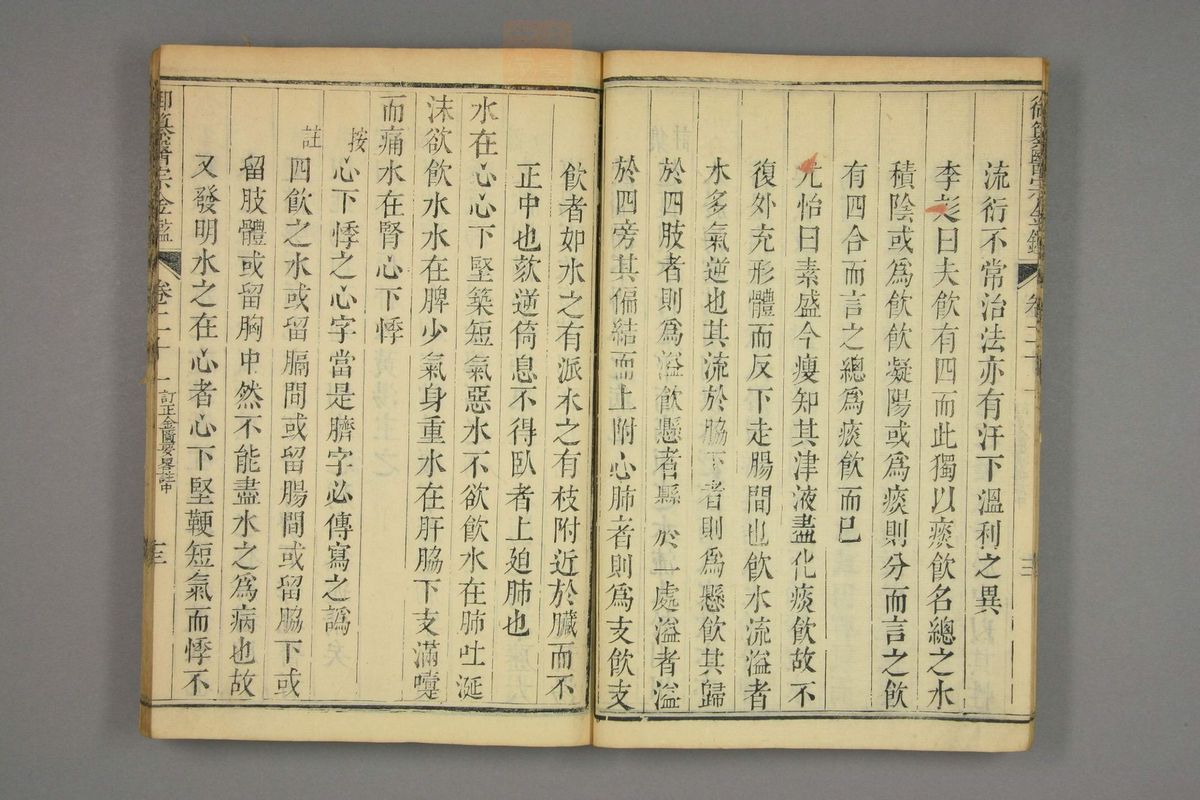 御纂醫宗金鑑 卷二十一
流衍不常治法亦有汗下溫利之異
李彣曰夫飲有四而此獨以痰飲名總之水
積陰或爲飲飲凝陽或爲痰則分而言之飲
有四合而言之總爲痰飲而已
尤怡曰素盛今瘦知其津液盡化痰飲故不
復外充形體而反下走腸間也飲水流溢者
水多氣逆也其流於脇下者則爲懸飲其歸
於四肢者則爲溢飲懸者懸於一處溢者溢
於四旁其偏結而上附心肺者則爲支飲支
飲者如水之有派木之有枝附近於臟而不
正中也欬逆倚息不得臥者上廹肺也
水在心心下堅築短氣惡水不欲飲水在肺吐涎
沫欲飲水水在脾少氣身重水在肝脇下支滿嚏
而痛水在腎心下悸
按心下悸之心字當是臍字必傳寫之譌
註四飲之水或留膈間或留腸間或留脇下或
留肢體或留胸中然不能盡水之爲病也故
又發明水之在心者心下堅鞕短氣而悸不
御纂醫宗金鑑 卷二十一 訂正金匱要畧註中 十三